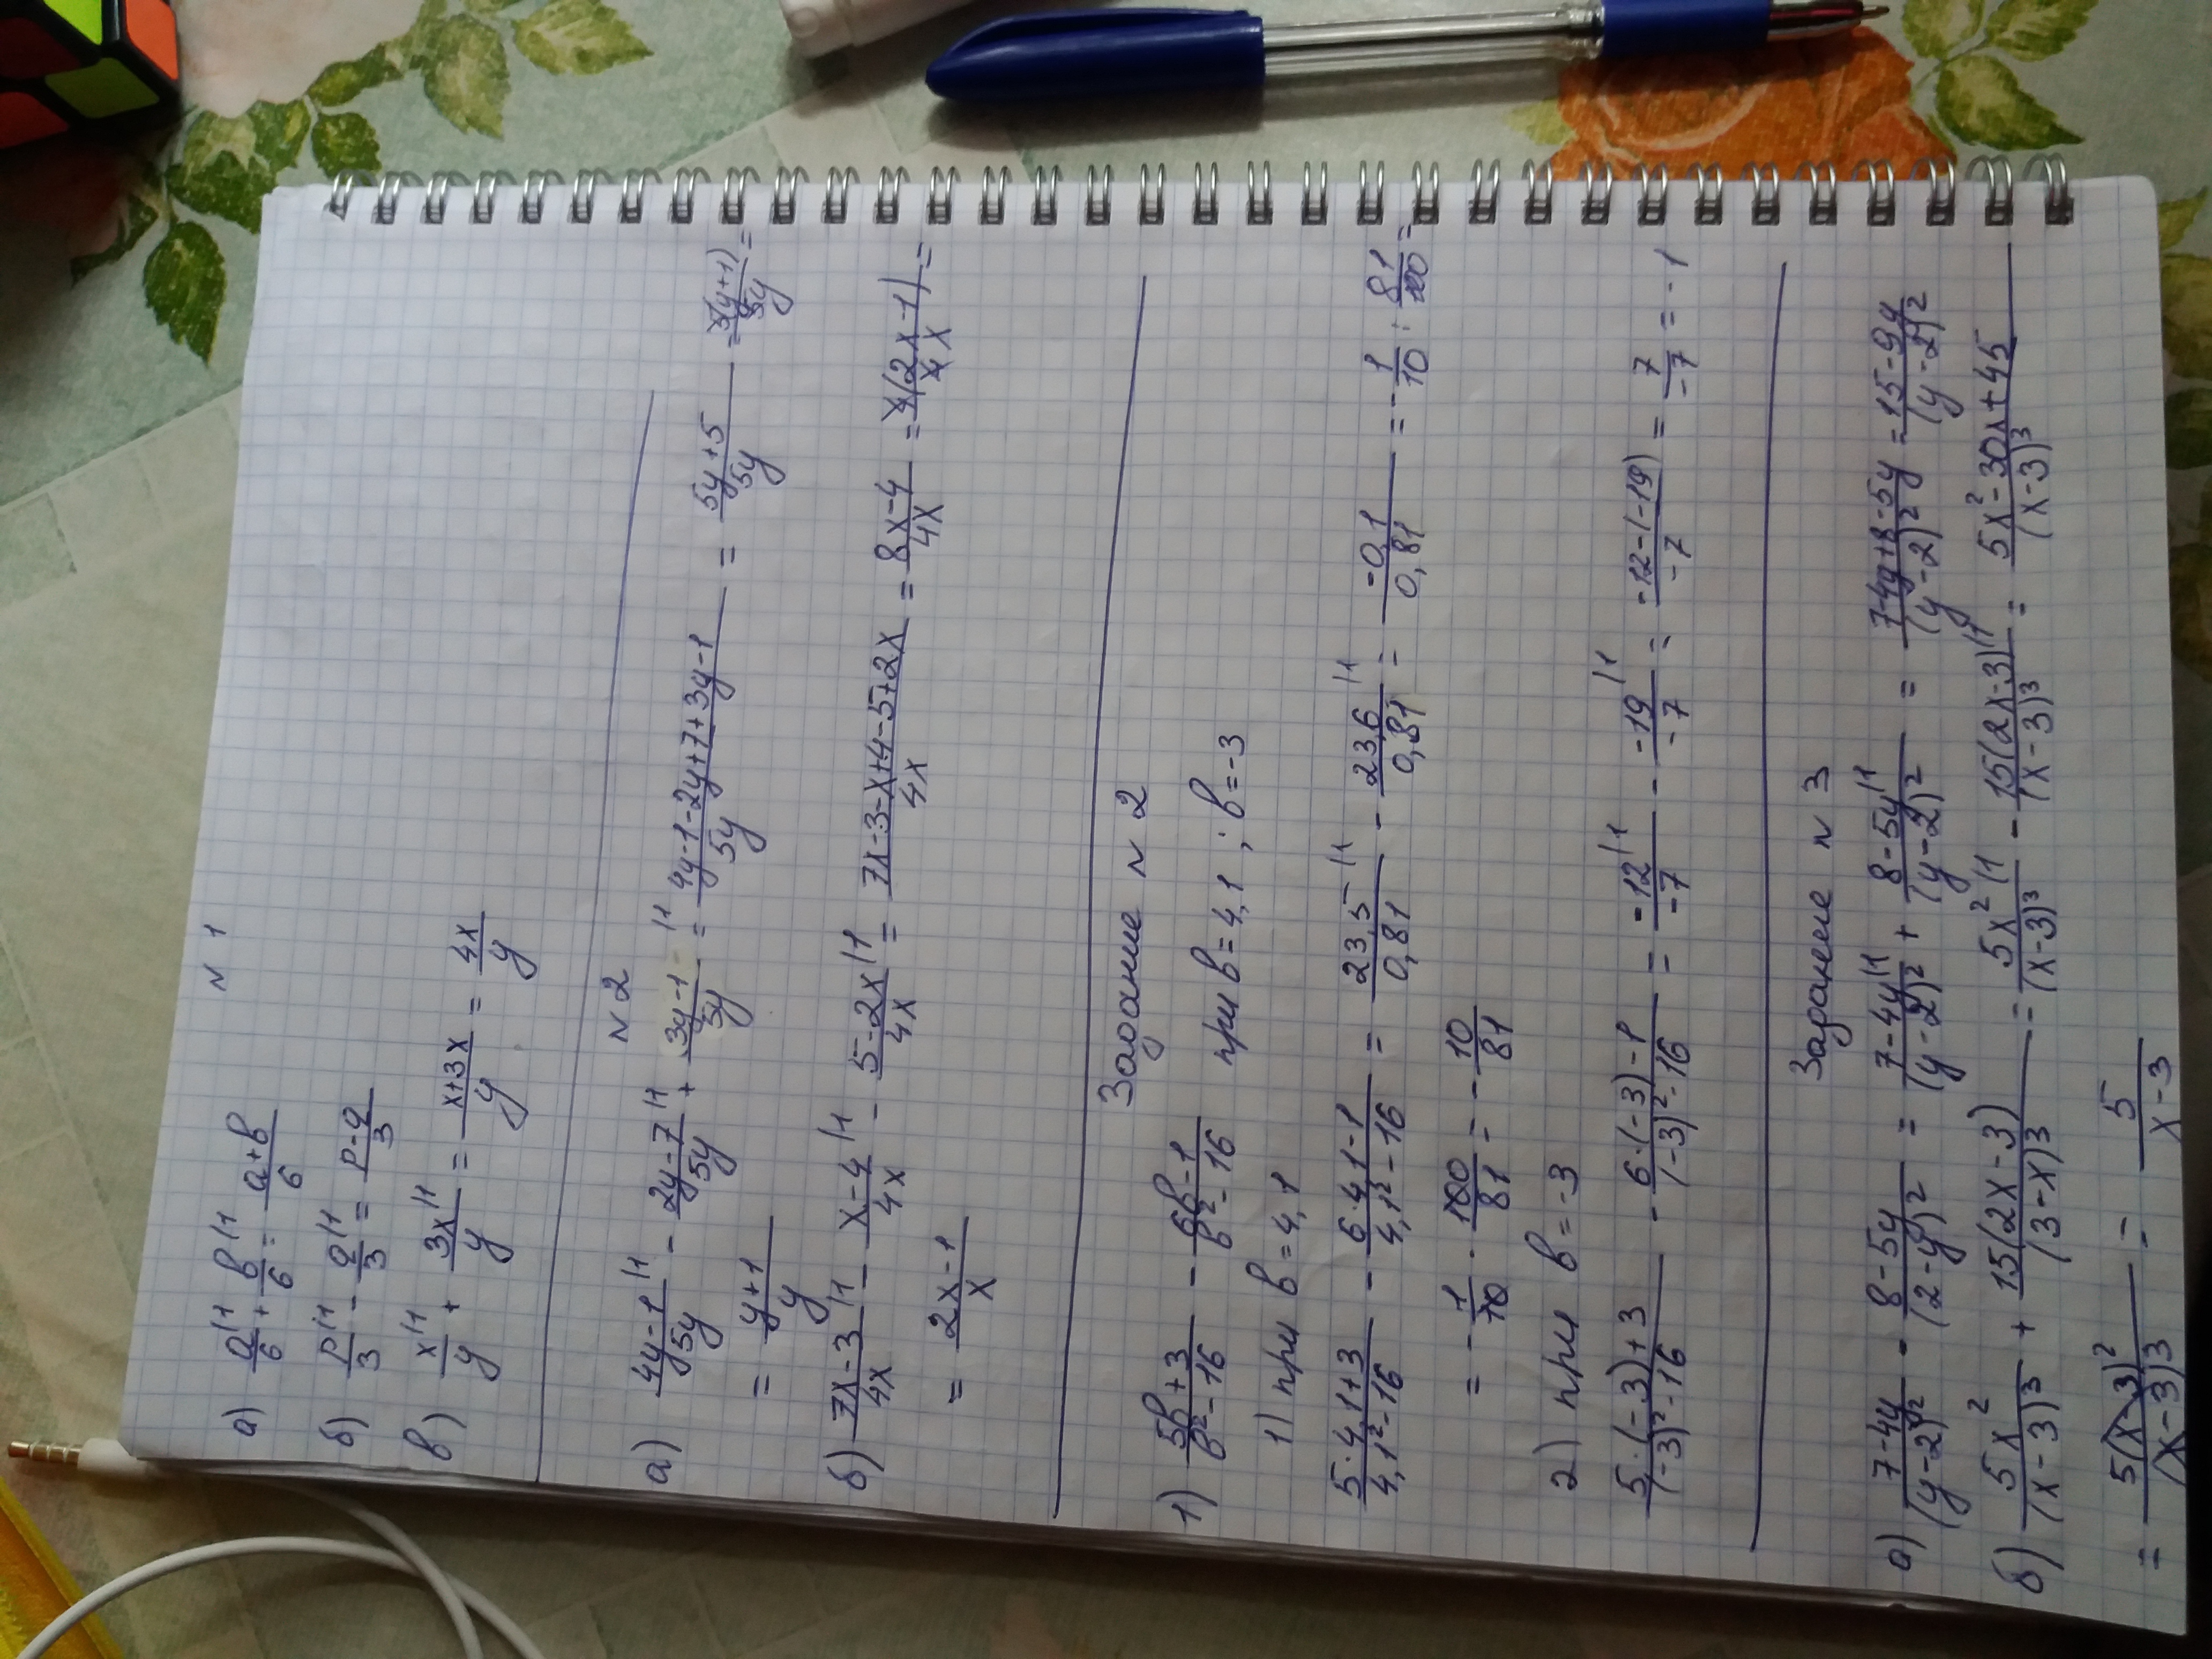 N 1
а) a/6 |1 + b/6 |1 = (a+b)/6
б) p/3 |1 - a/3 |1 = (p-a)/3
в) x/y |1 + 3x/y |1 = (x+3x)/y = 4x/y
N 2
а) (4y-1)/5y |1 - (2y-7)/5y |1 + (3y-1)/5y |1 = (4y-1-2y+7+3y-1)/5y = (5y+5)/5y = 5(y+1)/5y =
= (y+1)/y
б) (7x-3)/4x |1 - (x-4)/4x |1 - (5-2x)/4x |1 = (7x-3-x+4-5+2x)/4x = (8x-4)/4x = 4(2x-1)/4x =
= (2x-1)/x
Задание N 2
1) (5b+3)/(b²-16) - (6b-1)/(b²-16) при b=4,1 ; b=-3
1) при b=4,1
(5·4,1+3)/(4,1²-16) - (6·4,1-1)/(4,1²-16) = 23,5/0,81 |1 - 23,6/0,81 |1 = -0,1/0,81 = -1/10 : 81/100 =
= -1/10 · 100/81 = -10/81
2) при b=-3
(5·(-3)+3)/((-3)²-16) - (6·(-3)-1)/((-3)²-16) = -12/-7 |1 - -19/-7 |1 = (-12-(-19))/-7 = 7/-7 = -1
Задание N 3
а) (7-4y)/(y-2)² - (8-5y)/(2-y)² = (7-4y)/(y-2)² |1 + (8-5y)/(y-2)² |1 = (7-4y+8-5y)/(y-2)² = (15-9y)/(y-2)²
б) 5x²/(x-3)³ + 15(2x-3)/(3-x)³ = 5x²/(x-3)³ |1 - 15(2x-3)/(x-3)³ |1 = (5x²-30x+45)/(x-3)³
= 5(x-3)²/(x-3)³ = 5/(x-3)